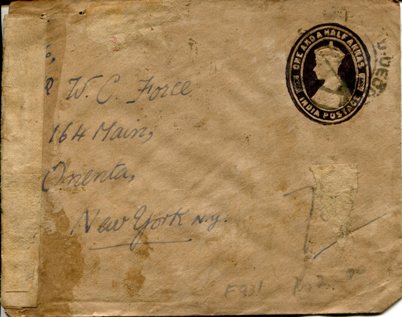 ONE AND A HALF ANNAS
INDIA POSTAGE
To,
W. C. Force
164 Main,
Oneonta,
New York N.Y.